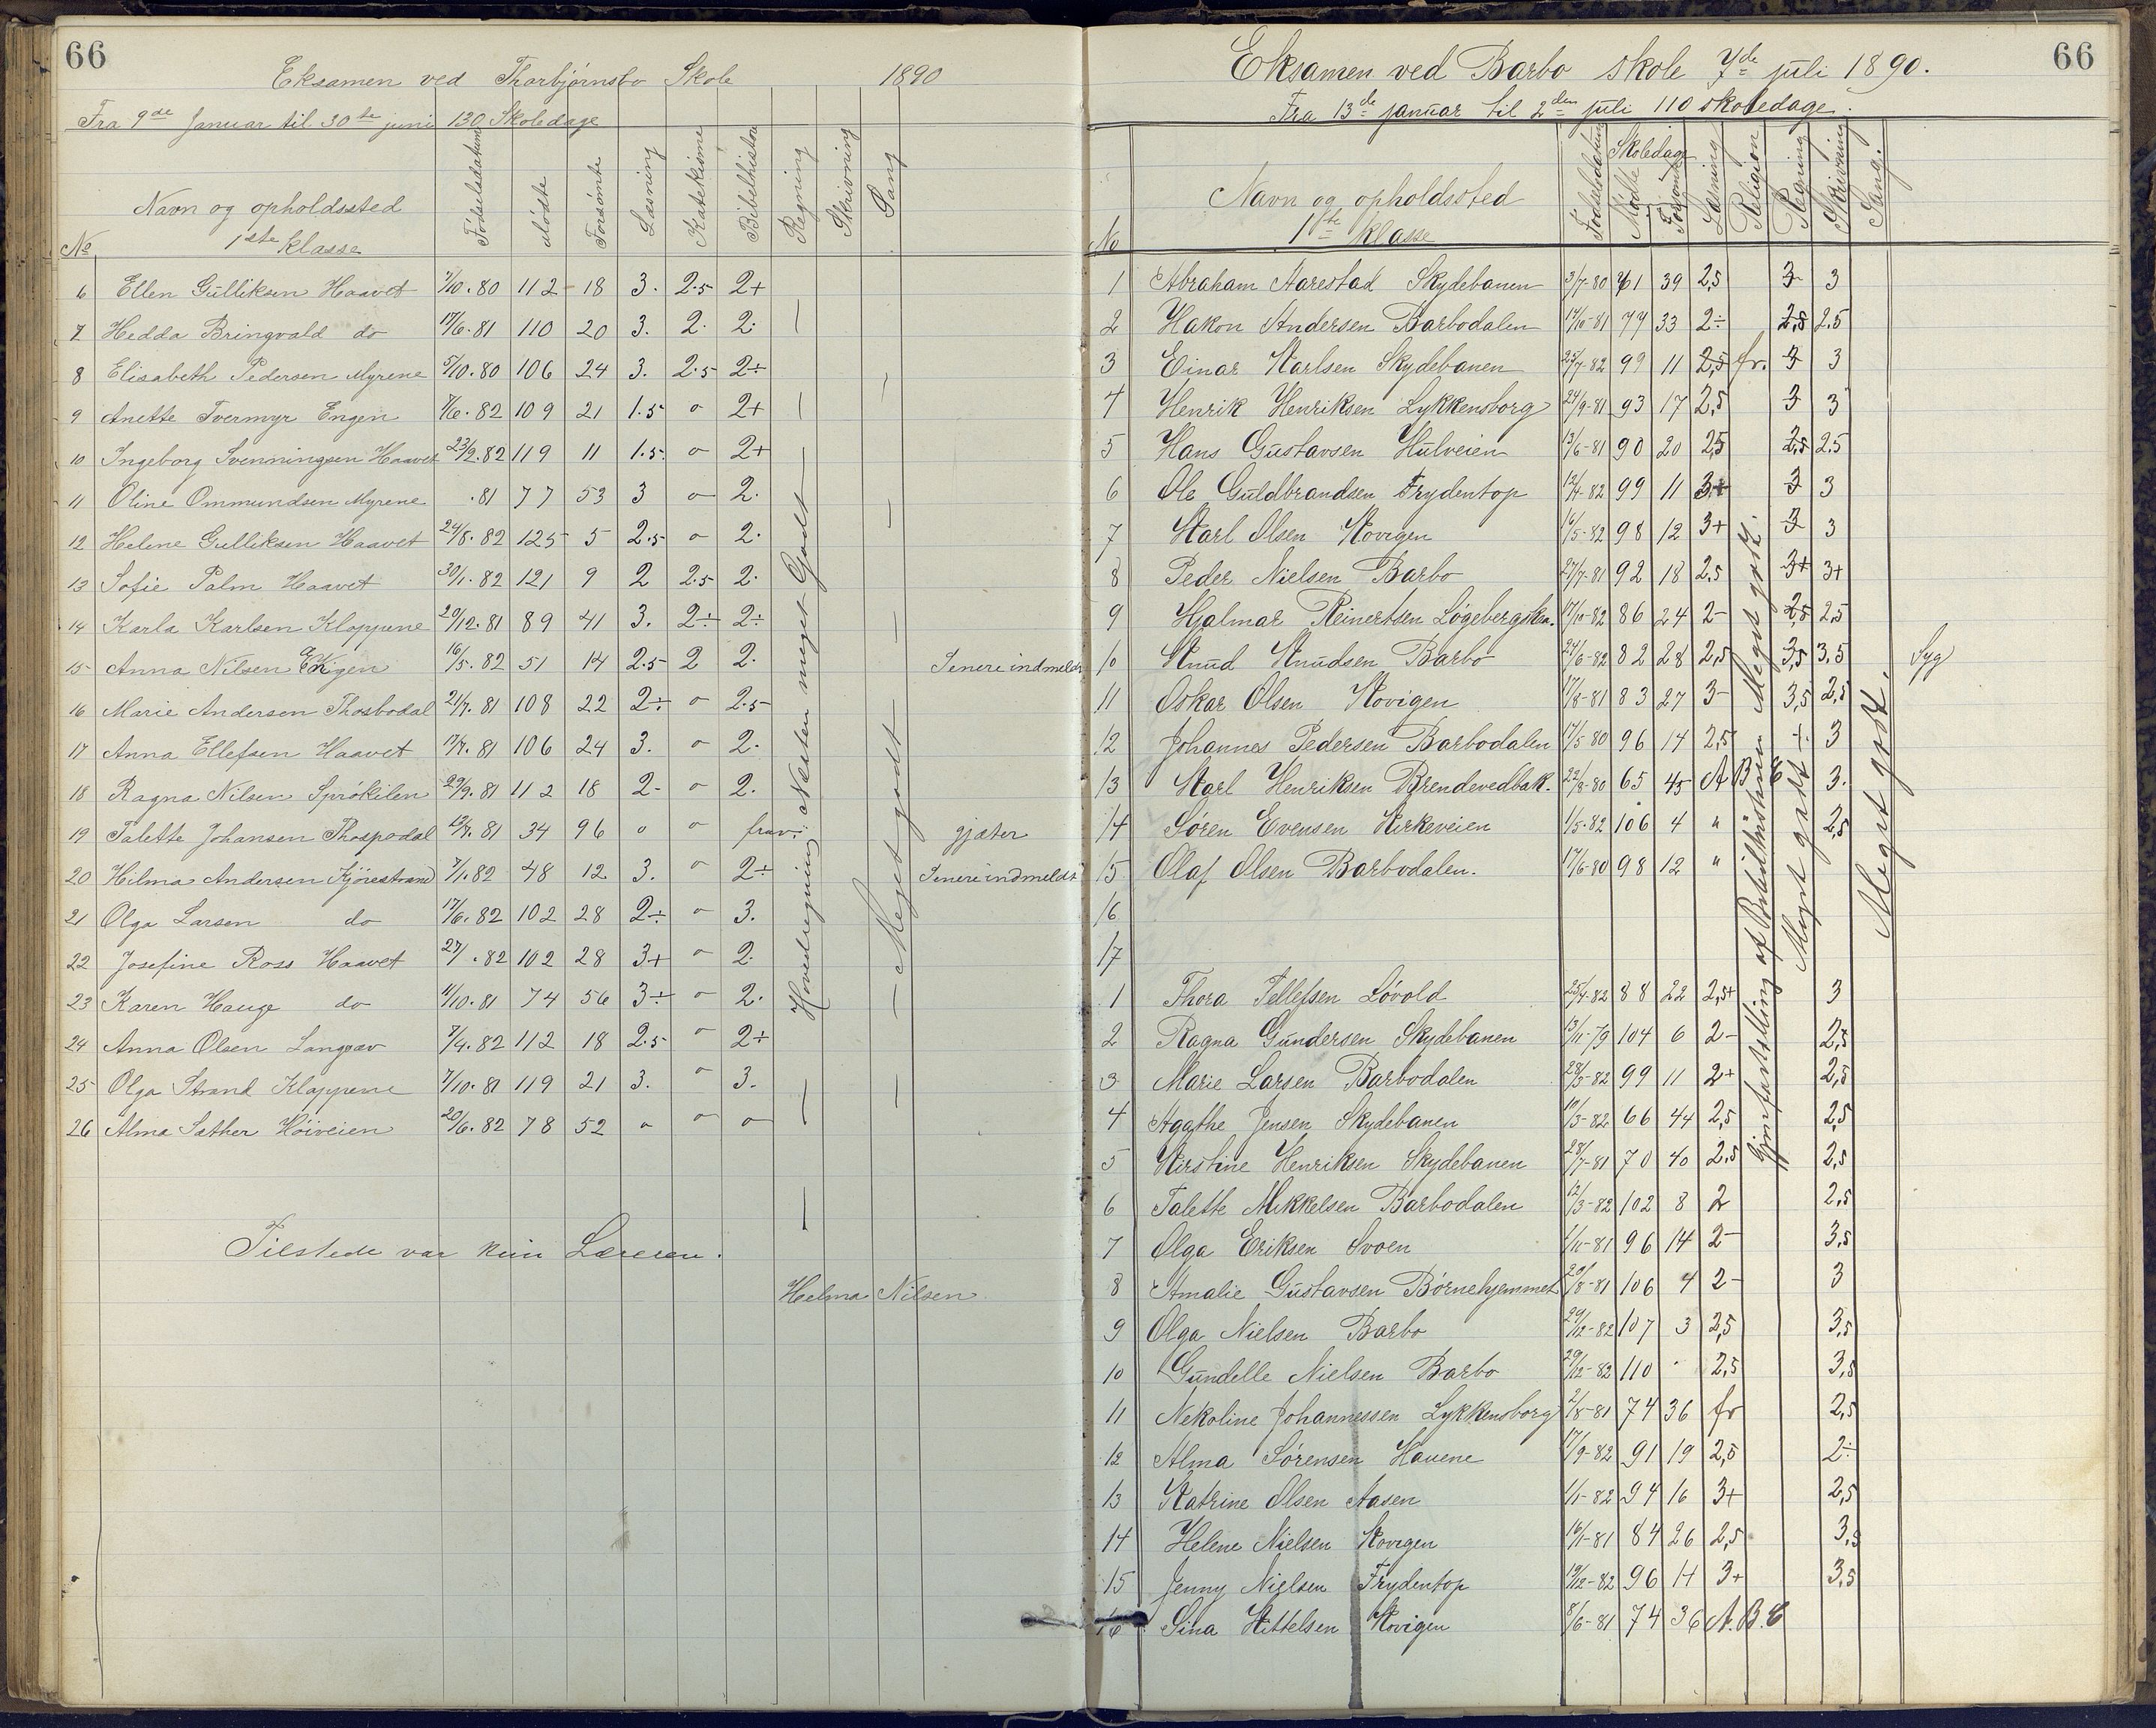 66
Eksamen ved Thorbjørnsbo Skole 1890
Fra 9de Januar til 30te juni 130 Skoledage
No Navn og opholdssted 1ste Klasse Fødselsdatum Mødte Forsømte Læsning Katekisme Bibelhistorie Regning Skrivning Sang
6 Ellen Gulliksen Haavet 7/10.80 112 18 3. 2.5 2+
7 Hedda Bringvald do 17/6.81 110 20 3. 2. 2.
8 Elisabeth Pedersen Myrene 5/10.80 106 24 3. 2.5 2÷
9 Anette Tvermyr Engen 7/6.82 109 21 1.5 o 2+
10 Ingeborg Svenningsen Haavet 23/2.82 119 11 1.5. o 2+
11 Oline Ommundsen Myrene .81 77 53 3 o 2.
12 Helene Gulliksen Haavet 24/8.82 125 5 2.5 o 2.
13 Sofie Palm Haavet 30/1.82 121 9 2 2.5 2.
14 Karla Karlsen Kloppene 20/12.81 89 41 3. 2÷ 2÷
15 Anna Nilsen 16/5.82 51 14 2.5 2 2. Senere indmeldt
16 Marie Andersen Thosbodal 21/7.81 108 22 2÷ o 2.5
17 Anna Ellefsen Haavet 17/7.81 106 24 3. o 2.
18 Ragna Nilsen Sprøkilen 29/9.81 112 18 2- o 2.
19 Talette Johansen Thospodal 12/7.81 34 96 o o frav. gjæter
20 Hilma Andersen Kjørestrand 7/1.82 48 12 3. o 2÷ Senere indmeldt
21 Olga Larsen do 17/6.82 102 28 2÷ o 3.
22 Josefine Ross Haavet 27/ .82 102 28 3+ o 2.
23 Karen Hauge do 11/10.81 74 56 3÷ o 2.
24 Anna Olsen Langsæv 7/4.82 112 18 2.5 o 2+
25 Olga Strand Kloppene 7/10.81 119 21 3. o 3.
26 Alma Sather Høiveien 20/6.82 78 52 o o o
Hovedregning Næsten meget Godt
Meget godt
Tilstede var kun Læreren.
Helma Nilsen
66
Eksamen ved Barbo skole 7de juli 1890.
Fra 13de januar til 2den juli 110 skoledage.
No Navn og opholdssted 1ste klasse Fødselsdatum Skoledage Mødte Forsømte Læsning Religion Regning Skrivning Sang.
1 Abraham Aarestad Skydebanen 3/7-80 71 39 2,5 3 3
2 Hakon Andersen Barbodalen 14/10-81 77 33 2÷ 2,5 2.5
3 Einar Karlsen Skydebanen 25/7-82 99 11 2,5 fr. 3 3
4 Henrik Henriksen Lykkensborg 24/9-81 93 17 2,5 3 3
5 Hans Gustavsen Hulveien 13/6-81 90 20 2,5 2,5 2.5
6 Ole Guldbrandsen Frydentop 12/4-82 99 11 3+ 3 3
7 Karl Olsen Kovigen 16/5-82 98 12 3+ 3 3
8 Peder Nielsen Barbo 27/7-81 92 18 2.5 3+ 3+
9 Hjalmar Reinertsen Løgebergskn. 17/10-82 86 24 2- 2,5 2.5
10 Knud Knudsen Barbo 24/6-82 82 28 2,5 3,5 3.5 Syg
11 Oskar Olsen Kovigen 17/8-81 83 27 3- 3,5 2,5
12 Johannes Pedersen Barbodalen 17/5 80 96 14 2,5 + 3
13 Karl Henriksen Brendevedbak. 22/8-80 65 45 A B C 3.
14 Søren Evensen Kirkeveien 1/5-82 106 4 " 2,5
15 Olaf Olsen Barbodalen. 17/6-80 98 12 "
16
17
1 Thora Tellefsen Løvold 25/4-82 88 22 2,5+ 3
2 Ragna Gundersen Skydebanen 13/11-79 104 6 2- 2,5
3 Marie Larsen Barbodalen 28/3-82 99 11 2+ 2,5
4 Agathe Jensen Skydebanen 10/3-82 66 44 2,5 2,5
5 Kirstine Henriksen Skydebanen 28/7-81 70 40 2.5 2,5
6 Talette Mikkelsen Barbodalen 12/3-82 102 8 2 2,5
7 Olga Eriksen Svoen 1/11-81 96 14 2- 3,5
8 Amalie Gustavsen Børnehjemmet 20/8-81 106 4 2- 3
9 Olga Nielsen Barbo 29/12-82 107 3 2,5 3,5
10 Gundelle Nielsen Barbo 29/12-82 110 - 2,5 3,5
11 Nekoline Johannessen Lykkensborg 2/8-81 74 36 fr 2,5
12 Alma Sørensen Havene 17/9-82 91 19 2,5 2÷
13 Katrine Olsen Aasen 1/1-82 94 16 3+ 2,5
14 Helene Nielsen Kovigen 16/1-81 84 26 2,5 3,5
15 Jenny Nielsen Frydentop 19/12-82 96 14 3+ 3,5
16 Sina Kittelsen Kovigen 8/6-81 74 36 A.B.C
Gjenfortelling af Bibelhistorien Meget godt.
Meget godt
Meget godt.